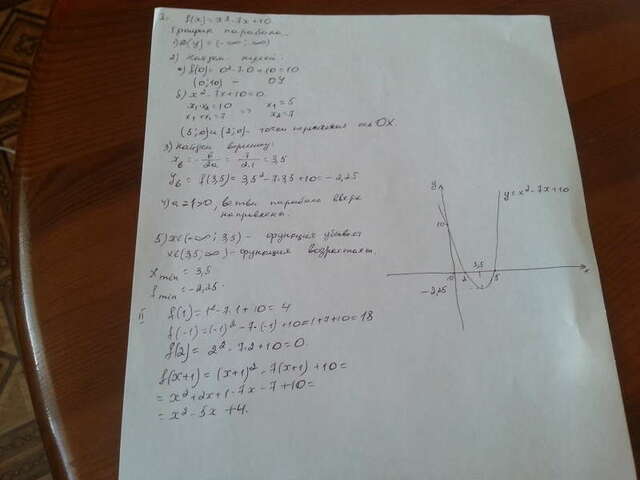 2. f(x) = x²-7x+10
График парабола.
1) D(y) = (-∞; ∞)
2) Найдем нули:
a) f(0) = 0²-7·0+10=10
(0; 10) - OY
б) x²-7x+10=0
x₁·x₂=10 x₁=5
x₁+x₂=7 => x₂=
(5; 0) и (2; 0) - точки пересечения оси OX
3) Найдем вершину:
xв = -b/2a = 7/2·1 = 3,5
yв = f(3,5) = 3,5²-7·3,5+10=-2,25
4) a=1>0, ветви параболы вверх
направлены.
5) x∈(-∞; 3,5) - функция убывает
x∈(3,5; ∞) - функция возрастает.
xmin = 3,5
fmin = -2,25.
II f(1) = 1²-7·1+10=4
f(-1) = (-1)²-7·(-1)+10=1+7+10=18
f(2) = 2²-7·2+10=0.
f(x+1) = (x+1)²-7(x+1)+10=
= x²+2x+1-7x-7+10=
= x²-5x+4.
y
y=x²-7x+10
10
3,5
0 2 5 x
-2,25